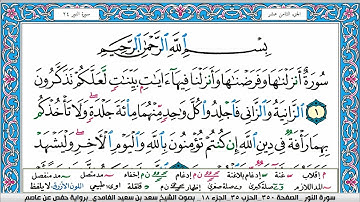 الجزء الثامن عشر سورة النور ٢٤
بِسْمِ اللَّهِ الرَّحْمَٰنِ الرَّحِيمِ
سُورَةٌ أَنزَلْنَاهَا وَفَرَضْنَاهَا وَأَنزَلْنَا فِيهَا ءَايَاتٍ بَيِّنَاتٍ لَّعَلَّكُمْ تَذَكَّرُونَ
١ الزَّانِيَةُ وَالزَّانِي فَاجْلِدُوا كُلَّ وَاحِدٍ مِّنْهُمَا مِائَةَ جَلْدَةٍ وَلَا تَأْخُذْكُم
بِهِمَا رَأْفَةٌ فِي دِينِ اللَّهِ إِن كُنتُمْ تُؤْمِنُونَ بِاللَّهِ وَالْيَوْمِ الْآخِرِ وَلْيَشْهَدْ
سورة النور - الصفحة ٣٥٠ - الحزب ٣٥ - الجزء ١٨ - بصوت الشيخ سعد بن سعيد الغامدي - برواية حفص عن عاصم